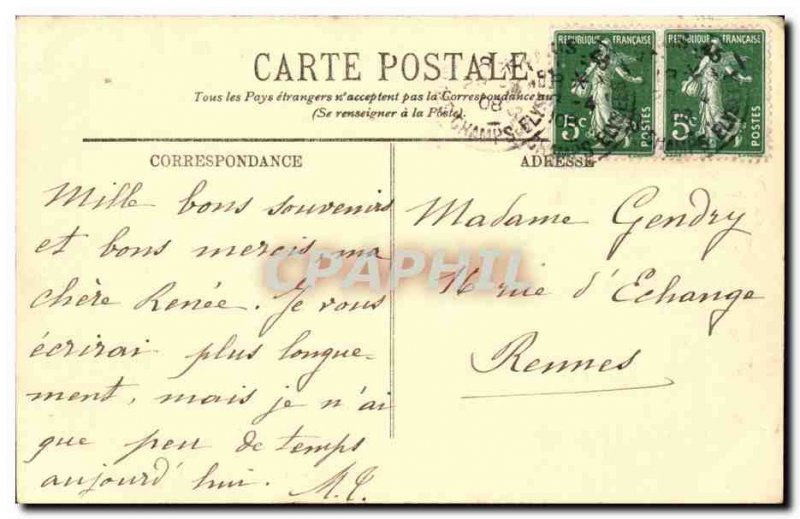 CARTE POSTALE
Tous les Pays étrangers n'acceptent pas la Correspondance au
(Se renseigner à la Poste).
RÉPUBLIQUE FRANÇAISE
5c
POSTES
RÉPUBLIQUE FRANÇAISE
5c
POSTES
CHAMPS-ELYSÉES
08
CORRESPONDANCE
ADRESSE
Mille bons souvenirs
et bons mercis ma
chère Renée. Je vous
écrirai plus longue-
ment, mais je n'ai
que peu de temps
aujourd'hui.
Madame Gendry
16 rue d'Echange
Rennes
CPAPHIL